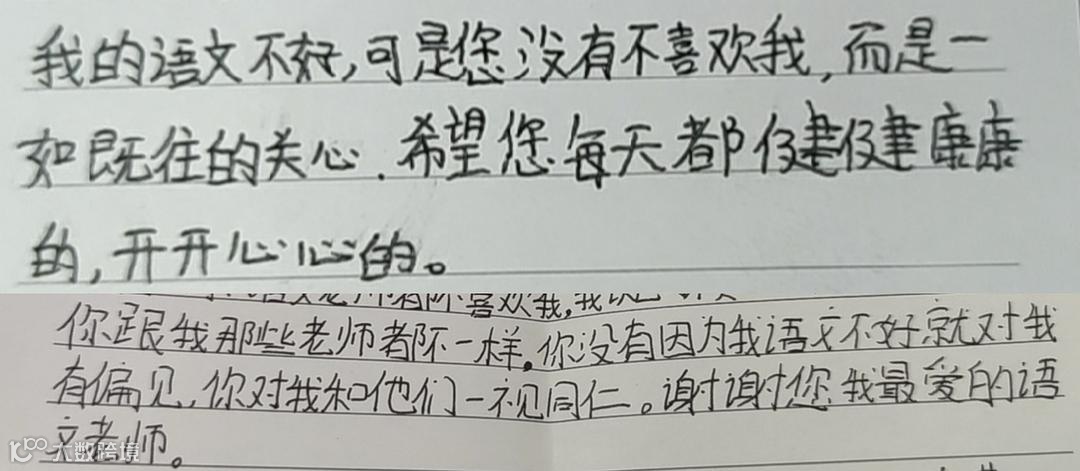 我的语文不好,可是您没有不喜欢我,而是一
如既往的关心.希望您每天都健健康康
的,开开心心的。
喜欢我,我
你跟我那些老师都不一样,你没有因为我语文不好就对我
有偏见,你对我和他们一视同仁。谢谢您我最爱的语
文老师。
大数跨境